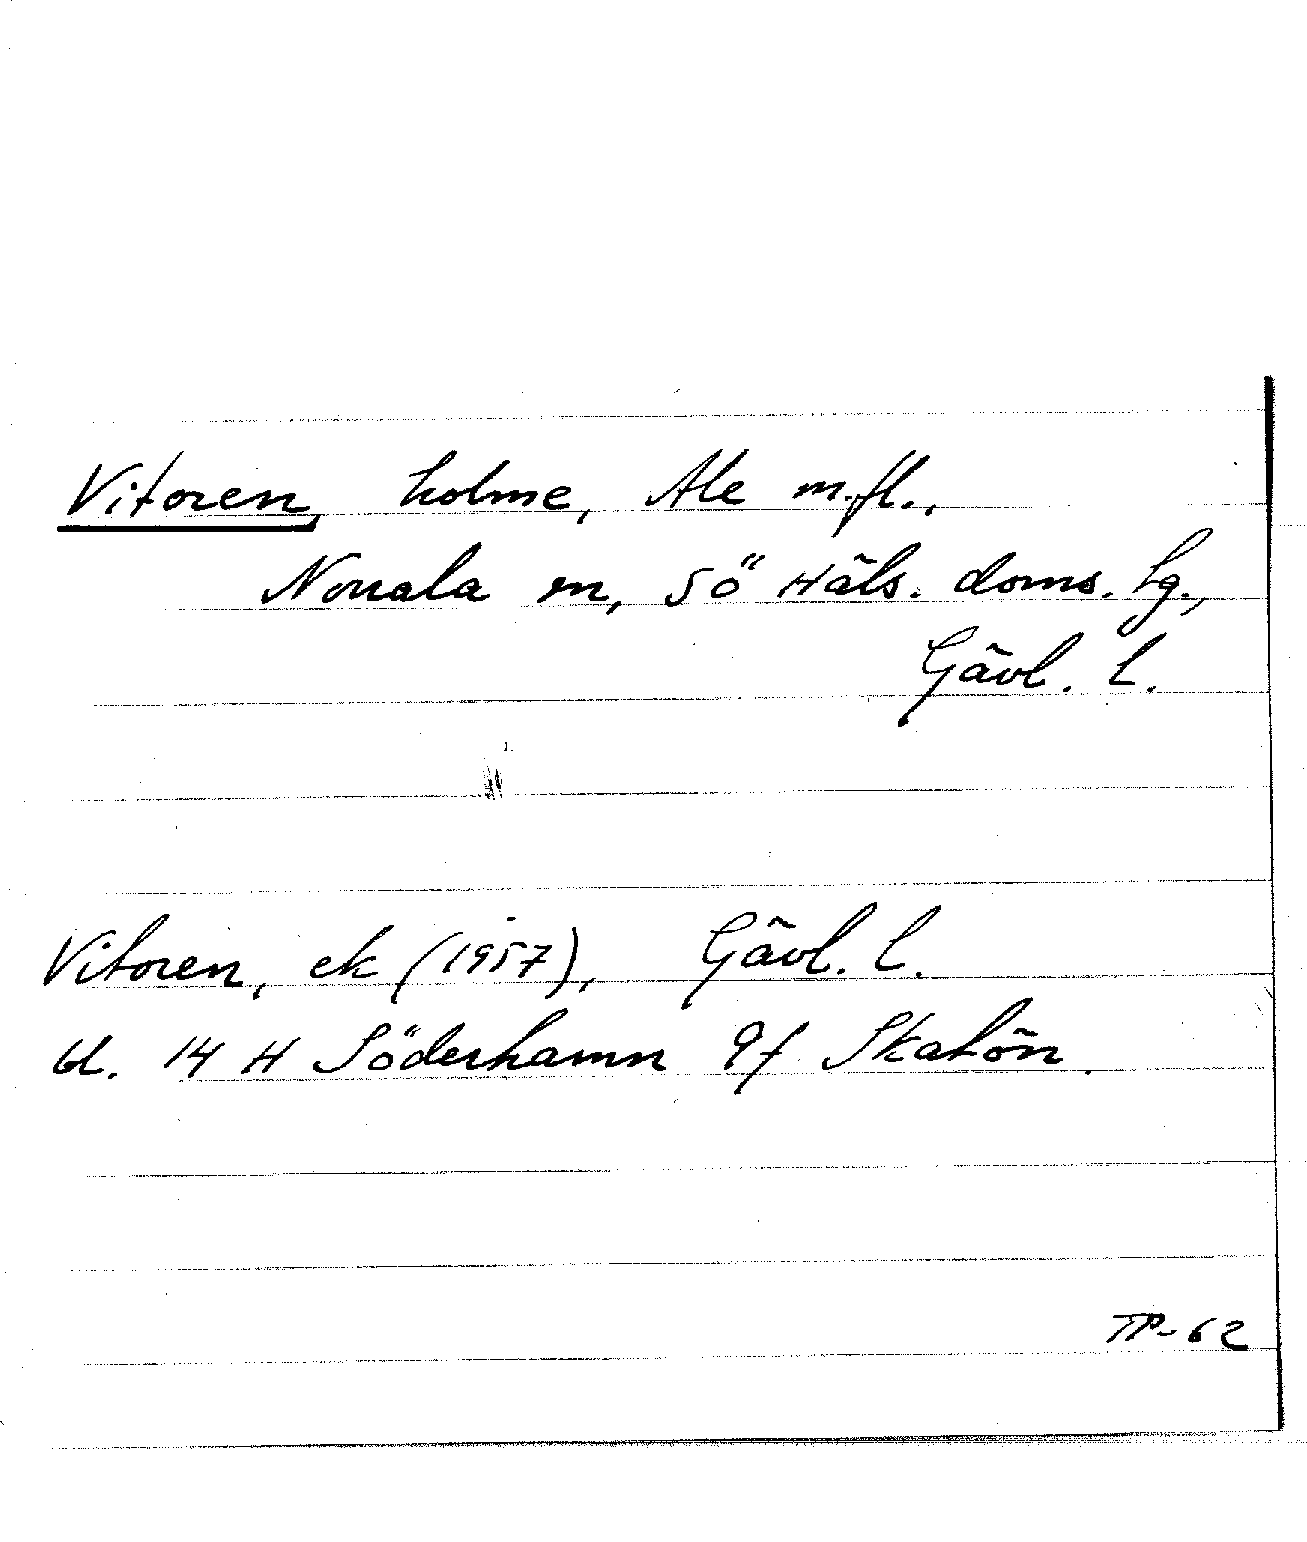 Vitoren, holme, Ale m.fl.,
Norrala sn, Sö Häls. doms. lg.,
Gävl. l.
Vitoren, ek (1957), Gävl. l.
bl. 14 H Söderhamn 9f Skatön.
TP-62